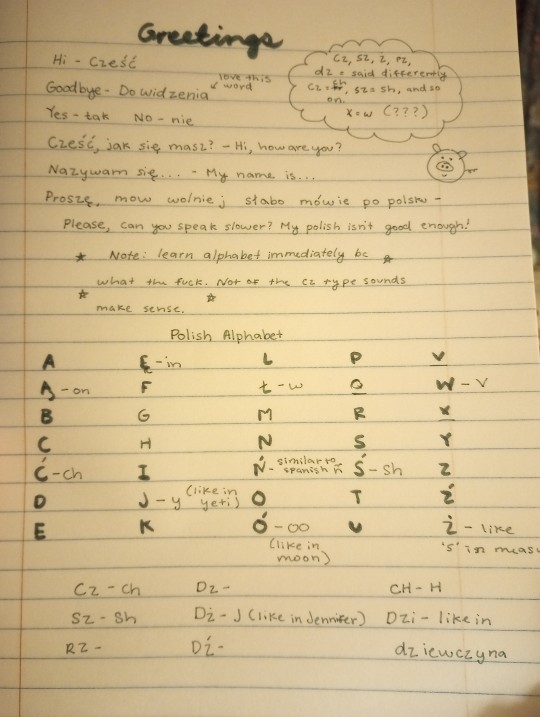 Greetings
Hi - Cześć
Goodbye - Do widzenia
love this
word
Yes - tak No - nie
Cz, sz, z, rz,
dz = said differently
cz = ch, sz = sh, and so
on.
x = w (???)
Cześć, jak się masz? - Hi, how are you?
Nazywam się... - My name is...
Proszę, mow wolniej słabo mówie po polsku -
Please, can you speak slower? My polish isn't good enough!
Note: learn alphabet immediately bc
what the fuck. Not of the cz type sounds
make sense.
Polish Alphabet
A Ę - in L P V
Ą - on F Ł - w Q W - V
B G M R X
C H N S Y
Ć - ch I Ń - similar to spanish ñ Ś - sh Z
D J - y (like in yeti) O T Ź
E K Ó - oo (like in moon) U Ż - like 's' in meas
Cz - ch Dz - CH - H
Sz - Sh Dż - J (like in Jennifer) Dzi - like in
RZ - Dź - dziewczyna